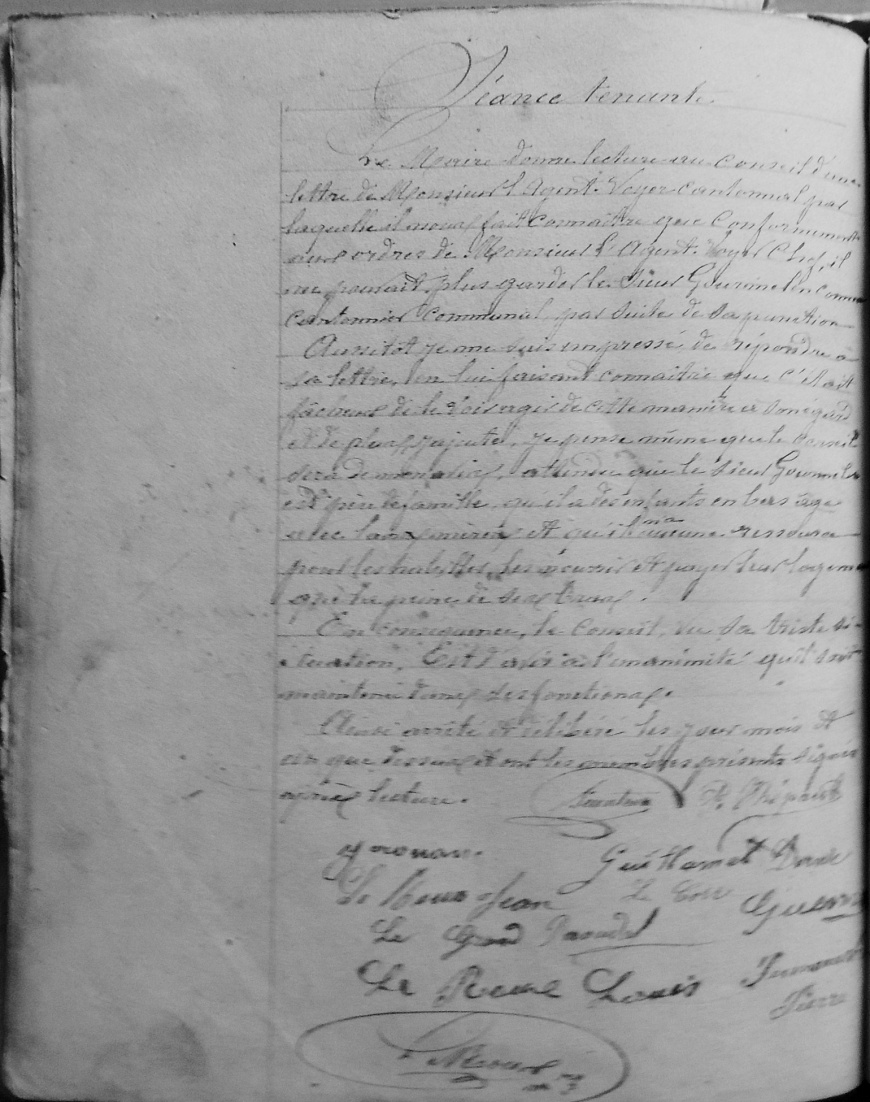 Séance tenante
Le Maire donne lecture au Conseil d'une
lettre de Monsieur l'Agent-Voyer cantonnal par
laquelle il nous fait connaître que conformément
aux ordres de Monsieur l'Agent-Voyer Chef, il
ne pouvait plus garder le Sieur comme
cantonnier communal par suite de sa punition
Aussitôt je me suis empressé de répondre à
sa lettre, en lui faisant connaitre que c'était
fâcheux de le voir agir de cette manière à son égard
et de plus j'ajoute, je pense même que le conseil
sera de mon avis, attendu que le sieur
est père de famille, qu'il a des enfants en bas âge
avec la misère et qu'il n'a aucune ressource
pour les habiller, les nourrir et payer leur logement
que la peine de ses bras.
En conséquence, le conseil, vu sa triste si-
tuation, Est d'avis à l'unanimité qu'il soit
maintenu dans ses fonctions.
Ainsi arrêté et délibéré les jour mois et
an que dessus et ont les membres présents signé
après lecture.
Guillamet
Le Roux Jean Le Guern
Le Grand
Le Roux Louis
Pierre